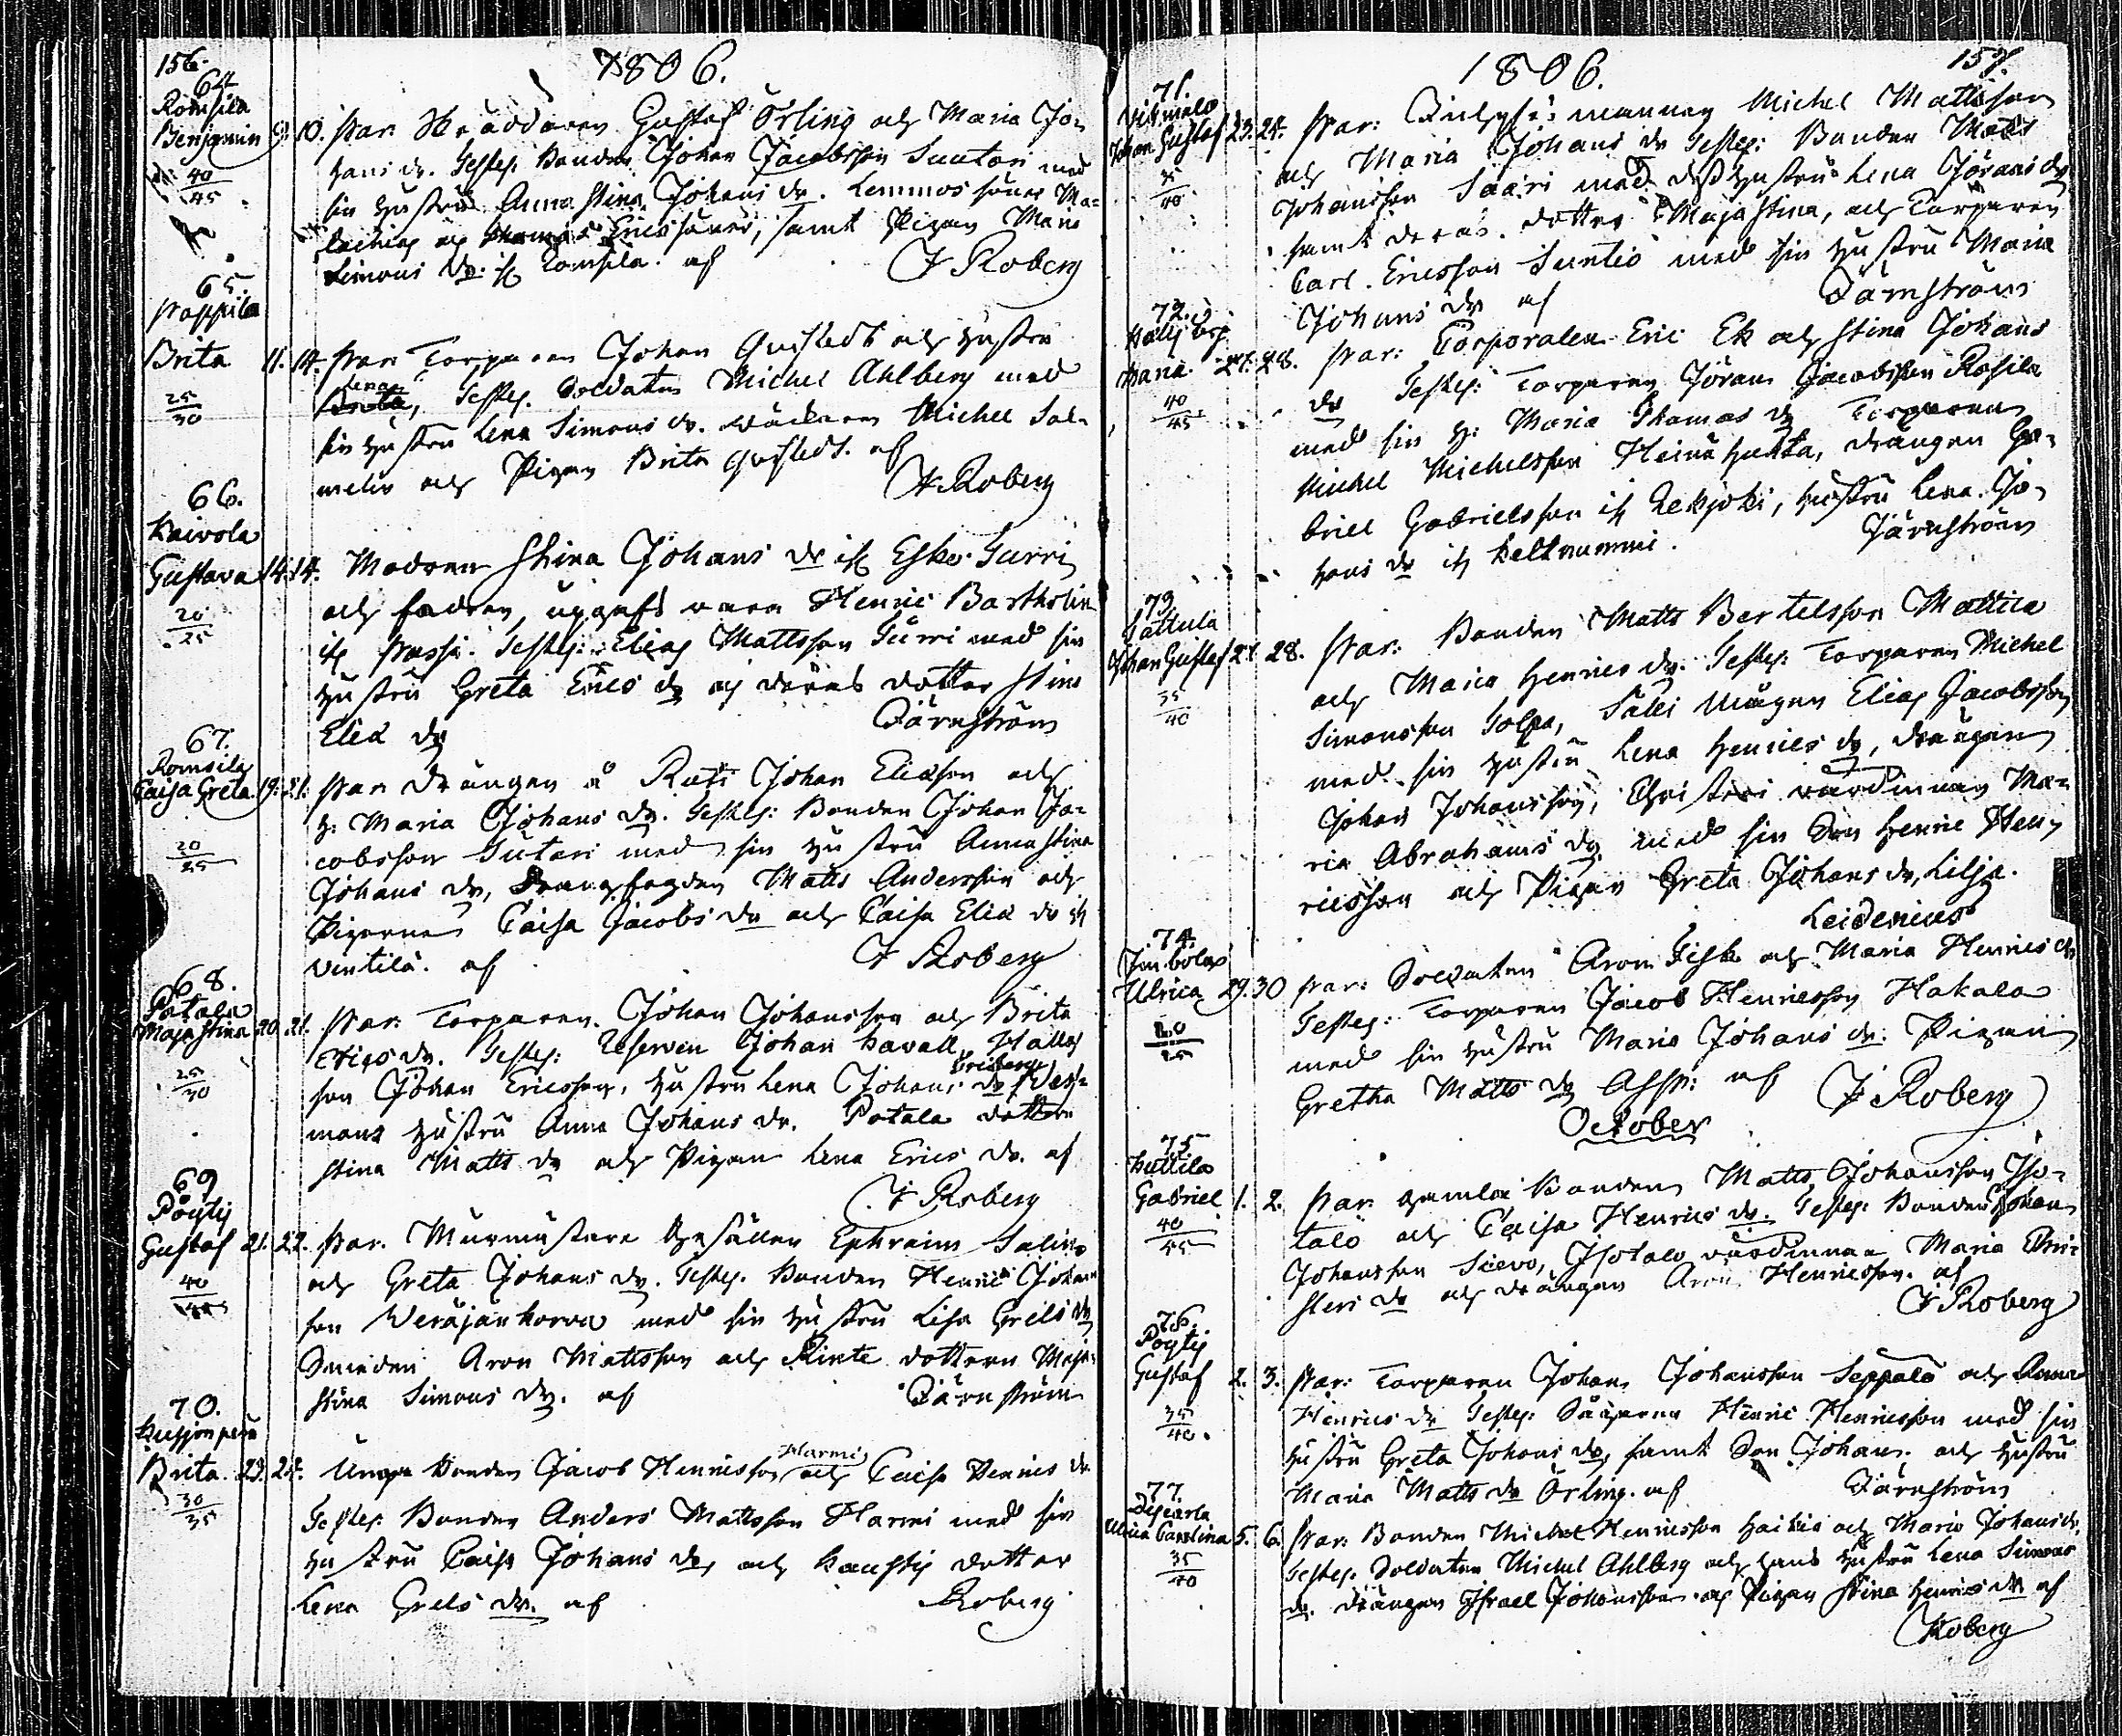 156.
1806.
64
Romsila
Benjamin 9. 10. Par. Skräddaren Gustaf Örling och Maria Jo-
40
45
hans dr. Testes: Bonden Johan Jacobsson Suutari med
sin hustru Anna Stina Johans dr. Lemmos söner Ma-
lachias och Thomas Erics söner, samt Pigan Maria
Simons dr. if. Romsila. af
J Roberg
65.
Pappila
Brita 11. 14. Par. Torparen Johan Qvistedt och hustru
25
30
Lena
Brita, Testes. Soldaten Michel Ahlberg med
sin hustru Lena Simons dr. Michel Sal-
och Pigan Brita Qvistedt. af
J Roberg
66.
Kaivola
Gustava 14. 14. Modren Stina Johans dr if. Esko Surri
20
25
och fadren upgifs vara Henric Bartholin
if. Passi. Testes: Elias Mattsson Surri med sin
hustru Greta Erics dr och deras dotter Stina
Elia dr
Därnström
67.
Romsila
Caisa Greta 19. 21. Par. Drängen å Rati Johan Eliæson och
20
25
h: Maria Johans dr. Testes: Bonden Johan Ja-
cobsson Sutari med sin hustru Anna Stina
Johans dr, Matts Andersson och
Pigorna Caisa Jacobs dr och Caisa Eliæ dr if.
Ventilä. af
J Roberg
68.
Patala
Maja Stina 20. 21. Par. Torparen Johan Johansson och Brita
25
30
Erics dr. Testes: Reserven Johan Havall, Hallas
son Johan Ericsson, hustru Lena Johans dr
mans hustru Anna Johans dr. Potala dottern
Stina Matts dr och Pigan Lena Erics dr. af
J Roberg
69
Pöytis
Gustaf 21. 22. Par. Murmästare Gesällen Ephraim Salin
40
45
och Greta Johans dr. Testes. Bonden Henric Johans
son Weräjänkorva med sin hustru Lisa Grels dr
Smeden Aron Mattsson och Rinte dottern Maja
Stina Simons dr. af
Därnström
70.
Brita. 23. 24. Unga Bonden Jacob Henricsson Harmi och Caisa Henrics dr
30
35
Testes. Bonden Anders Mattsson Harmi med sin
hustru Caisa Johans dr, och Kaustis dotter
Lena Grels dr. af
Roberg
1806.
157.
71.
Johan Gustaf 23. 24. Par: Michel Mattsson
40
och Maria Johans dr Testes: Bonden Matts
Johansson Saari med dess hustru Lena Jörans dr
samt deras dotter Maja Stina, och Torparen
Carl Ericsson Suntio med sin hustru Maria
Johans dr af
Därnström
72.
Maria 27. 28. Par: Corporalen Eric Ek och Stina Johans
40
45
dr Testes: Torparen Jöran Jacobsson Rosila
med sin h: Maria Thomas dr Torparen
Michel Michelsson Heinähuhta, drängen Ga-
briel Gabrielsson if. Rekijoki, hustru Lena Jo-
hans dr if. Keltnummi.
Järnström
73
Lattula
Johan Gustaf 27. 28. Par: Bonden Matts Bertelsson Mattila
35
40
och Maria Henrics dr. Testes: Torparen Michel
Simonsson Solpa, Säli Mågen Elias Jacobsson
med sin hustru Lena Henrics dr, drängen
Johan Johansson, värdinnan Ma-
ria Abrahams dr. med sin Son Henric Hen-
ricsson och Pigan Greta Johans dr, Lilja.
Leidenius
74.
Ulrica 29. 30 Par: Soldaten Aron Fisk och Maria Henrics dr
20
25
Testes: Torparen Jacob Henricsson Hakala
med sin hustru Maria Johans dr. Pigan
Gretha Matts dr af
J Roberg
October
75
Huttila
Gabriel 1. 2. Par. gamla Bonden Matts Johansson Iso-
40
45
talo och Caisa Henrics dr. Testes: Bonden Johan
Johansson Sievo, Isotalo värdinnan Maria Chri-
sters dr och drängen Aron Henricsson. af
J Roberg
76.
Pöytis
Gustaf 2. 3. Par: Torparen Johan Johansson Seppälä och Anna
35
40.
Henrics dr Testes: Henric Henricsson med sin
hustru Greta Johans dr, samt Son Johan och hustru
Maria Matts dr Örling. af
Därnström
77.
Ulrica Carolina 5. 6. Par: Bonden Michel Henricsson Haikia och Maria Johans dr,
35
40
Testes. Soldaten Michel Ahlberg och hans hustru Lena Simons
dr. drängen Israel Johansson och Pigan Stina Henrics dr af
Roberg